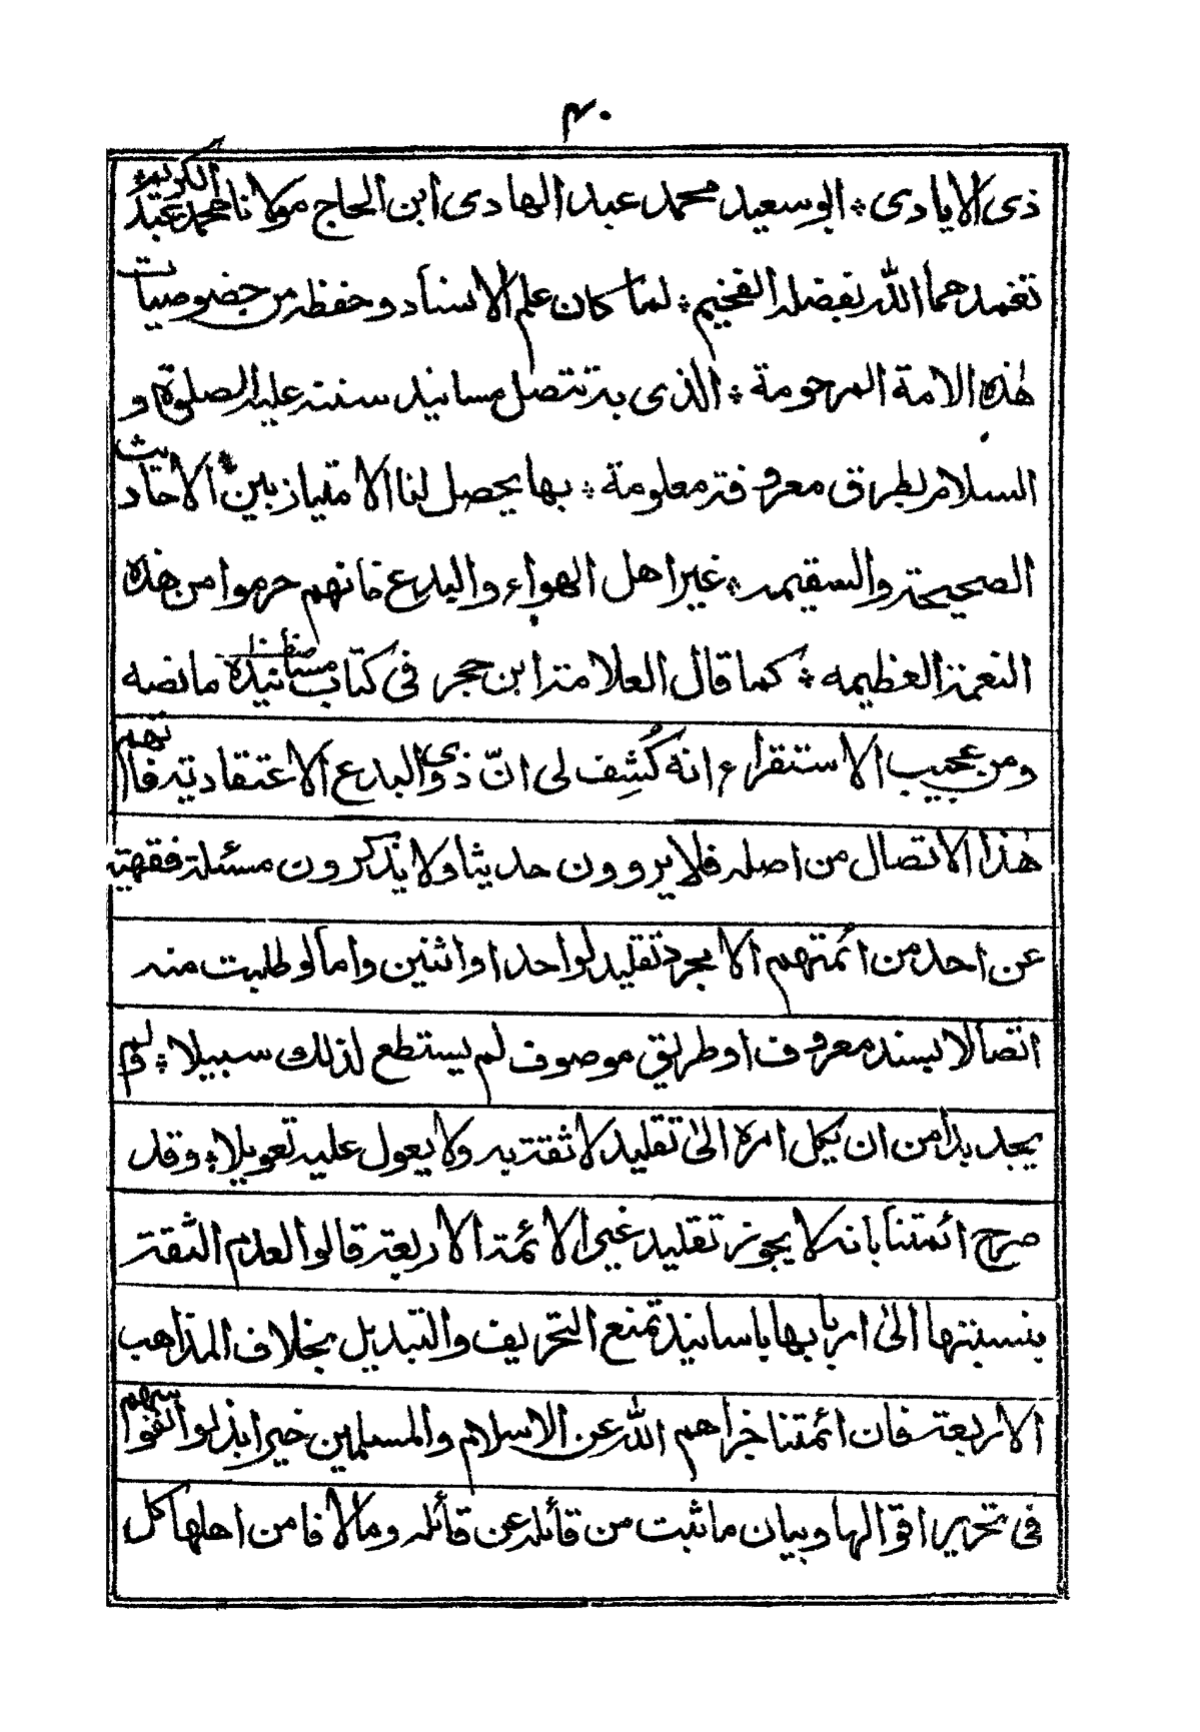 ۴۰
ذى الايادى ۞ ابو سعيد محمد عبد الهادى ابن الحاج مولانا محمد عبد الكريم
تغمدهما الله بفضله الفخيم ۞ لما كان علم الاسناد وحفظه من خصوصيات
هٰذه الامة المرحومة ۞ الذى به تتصل مسانيد سنته عليه الصلوة و
السلام بطرق معروفة معلومة ۞ بها يحصل لنا الامتياز بين الاحاديث
الصحيحة والسقيمه ۞ غير اهل الهواء والبدع فانهم حرموا من هذه
النعمة العظيمه ۞ كما قال العلامة ابن حجر فى كتاب مسانيده ما نصه
ومن عجيب الاستقراء انه كُشِف لى انّ ذوى البدع الاعتقادية فاتهم
هٰذا الاتصال من اصله فلا يروون حديثا ولا يذكرون مسئلة فقهية
عن احد من ائمتهم الا بمجرد تقليد لواحد او اثنين واما لو طلبت منه
اتصالا بسند معروف او طريق موصوف لم يستطع لذلك سبيلا ۞ ولم
يجد بدا من ان يكل امره الىٰ تقليد لا ثقة به ولا يعول عليه تعويلا ۞ وقد
صرح ائمتنا بانه لا يجوز تقليد غير الائمة الاربعة قالوا لعدم الثقة
بنسبتها الىٰ اربابها باسانيد تمنع التحريف والتبديل بخلاف المذاهب
الاربعة فان ائمتنا جزاهم الله عن الاسلام والمسلمين خيرا بذلوا انفسهم
فى تحرير اقوالها وبيان ما ثبت من قائله عن قائله وما لا فامن اهلها كل